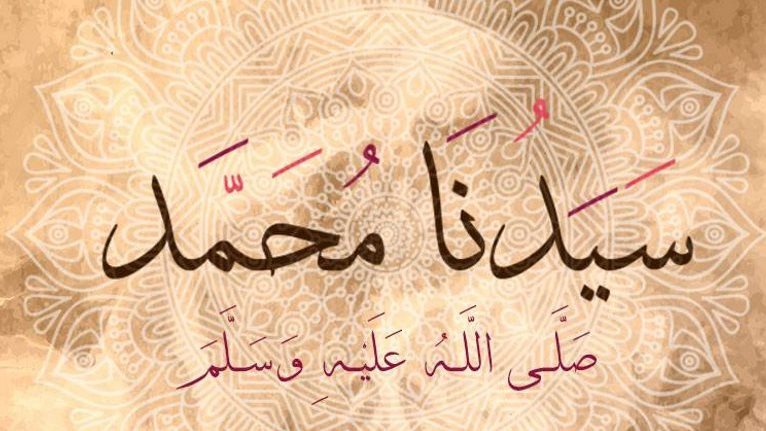 سَيَدُنَا مُحَمَّد
صَلَّى اللَّهُ عَلَيْهِ وَسَلَّمَ